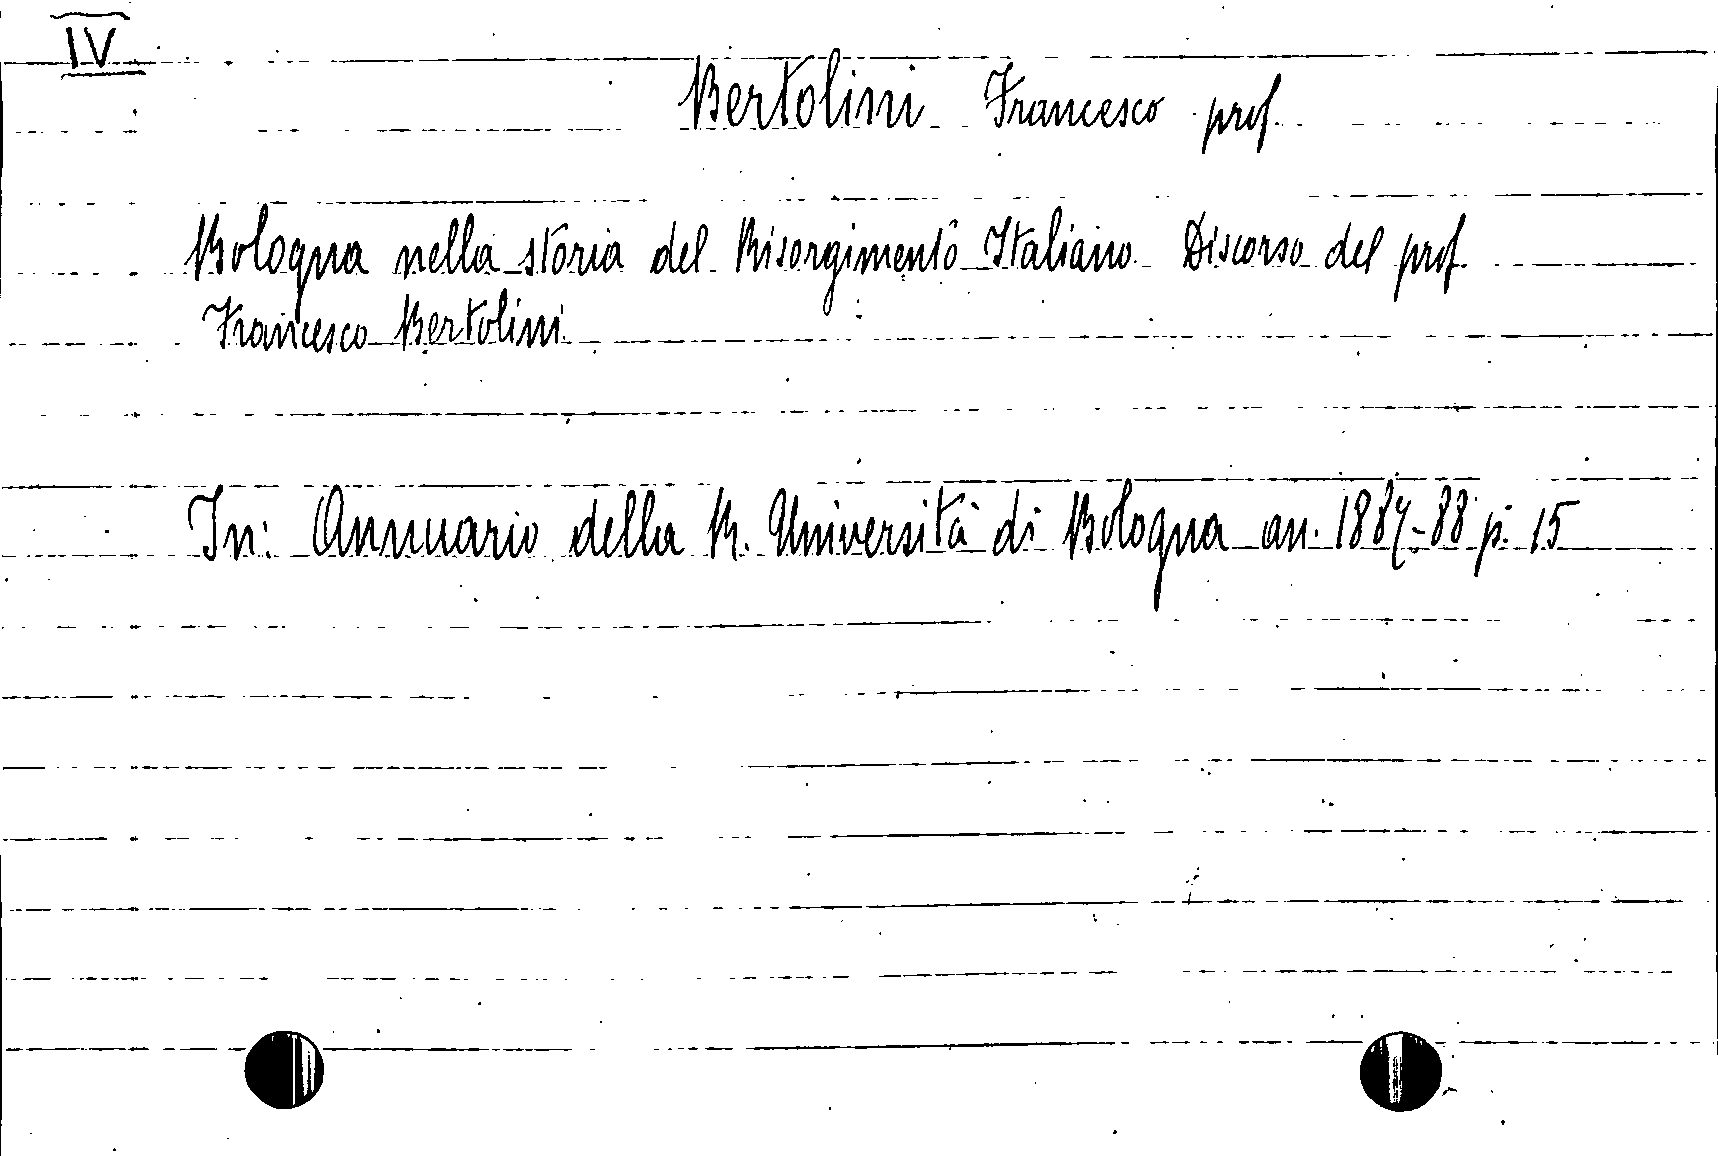 IV
Bertolini Francesco prof.
Bologna nella storia del Risorgimento Italiano. Discorso del prof.
Francesco Bertolini.
In: Annuario della R. Università di Bologna an. 1887-88 p. 15